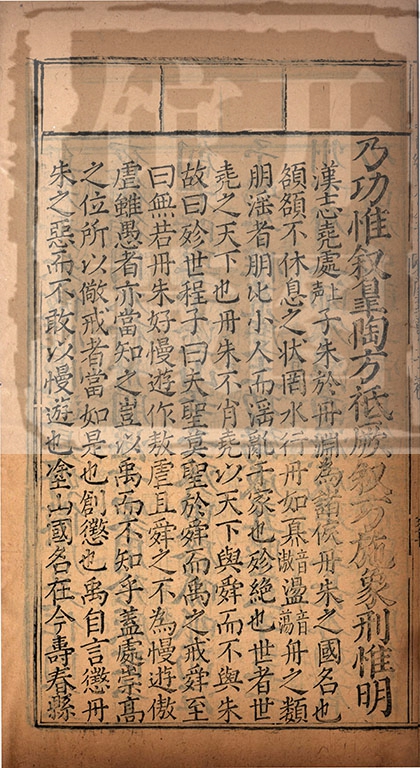 乃功惟叙皐陶方祗厥叙方施象刑惟明
漢志堯處上聲子朱於丹淵為諸侯丹朱之國名也
頟頟不休息之狀罔水行舟如奡音傲盪音蕩舟之類
朋淫者朋比小人而淫亂于家也殄絶也世者世
堯之天下也丹朱不肖堯以天下與舜而不與朱
故曰殄世程子曰夫聖莫聖於舜而禹之戒舜至
曰無若丹朱好慢遊作敖虐且舜之不為慢遊傲
虐雖愚者亦當知之豈以禹而不知乎蓋處崇高
之位所以儆戒者當如是也創懲也禹自言懲丹
朱之惡而不敢以慢遊也塗山國名在今壽春縣